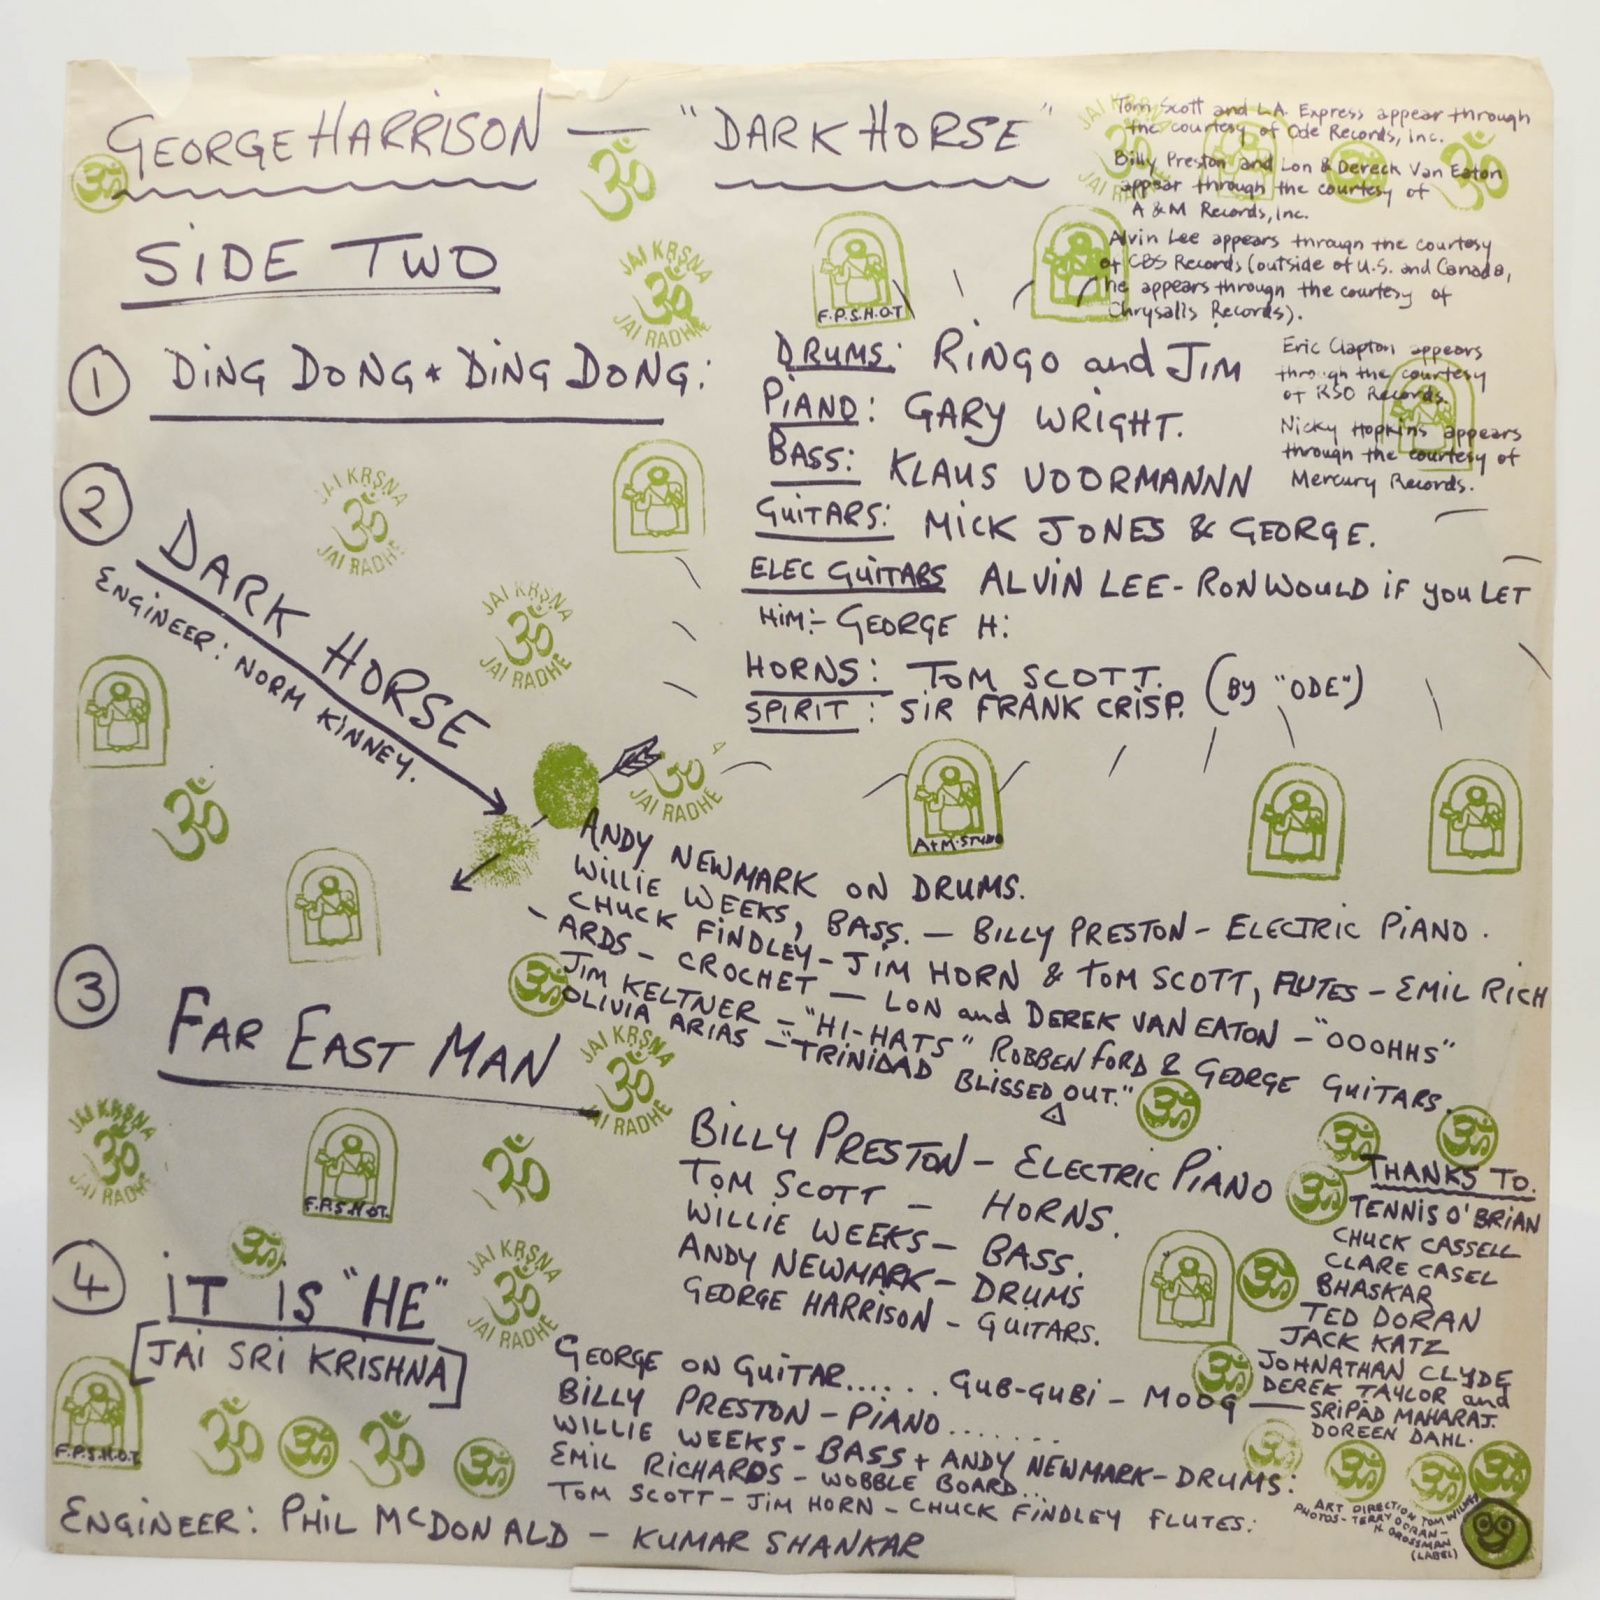 GEORGE HARRISON — "DARK HORSE"
SIDE TWO
Tom Scott and L.A. Express appear through
the courtesy of Ode Records, Inc.
Billy Preston and Lon & Dereck Van Eaton
appear through the courtesy of
A & M Records, Inc.
Alvin Lee appears through the courtesy
of CBS Records (outside of U.S. and Canada,
he appears through the courtesy of
Chrysalis Records).
Eric Clapton appears
through the courtesy
of RSO Records.
Nicky Hopkins appears
through the courtesy of
Mercury Records.
1 DING DONG * DING DONG:
DRUMS: RINGO and JIM
PIANO: GARY WRIGHT.
BASS: KLAUS VOORMANNN
GUITARS: MICK JONES & GEORGE.
ELEC GUITARS ALVIN LEE - RON WOULD IF YOU LET
HIM:- GEORGE H:
HORNS: TOM SCOTT.
SPIRIT: SIR FRANK CRISP. (BY "ODE")
2 DARK HORSE
ENGINEER: NORM KINNEY.
ANDY NEWMARK ON DRUMS.
WILLIE WEEKS, BASS. — BILLY PRESTON - ELECTRIC PIANO.
CHUCK FINDLEY - JIM HORN & TOM SCOTT, FLUTES - EMIL RICH
ARDS - CROCHET — LON and DEREK VAN EATON - "OOOHHS"
JIM KELTNER - "HI-HATS" ROBBEN FORD & GEORGE GUITARS.
OLIVIA ARIAS - "TRINIDAD BLISSED OUT."
3 FAR EAST MAN
BILLY PRESTON - ELECTRIC PIANO
TOM SCOTT - HORNS.
WILLIE WEEKS - BASS.
ANDY NEWMARK - DRUMS
GEORGE HARRISON - GUITARS.
4 IT IS "HE"
[JAI SRI KRISHNA]
GEORGE ON GUITAR...... GUB-GUBI - MOOG
BILLY PRESTON - PIANO.......
WILLIE WEEKS - BASS + ANDY NEWMARK - DRUMS:
EMIL RICHARDS - WOBBLE BOARD...
TOM SCOTT - JIM HORN - CHUCK FINDLEY FLUTES:
ENGINEER: PHIL McDONALD - KUMAR SHANKAR
THANKS TO.
TENNIS O'BRIAN
CHUCK CASSELL
CLARE CASEL
BHASKAR
TED DORAN
JACK KATZ
JOHNATHAN CLYDE
DEREK TAYLOR and
SRIPAD MAHARAJ.
DOREEN DAHL.
ART DIRECTION TOM WILKES
PHOTOS - TERRY DORAN -
H. GROSSMAN
(LABEL)
F.P.S.H.O.T
A+M. STUDIO
F.P.S.H.O.T.
F.P.S.H.O.T.
ॐ
JAI KRṢNA
ॐ
JAI RADHE
JAI KRṢNA
ॐ
JAI RADHE
JAI KRṢNA
ॐ
JAI RADHE
JAI KRṢNA
ॐ
JAI RADHE
JAI KRṢNA
ॐ
JAI RADHE
JAI KRṢNA
ॐ
JAI RADHE
ॐ
JAI RADHE